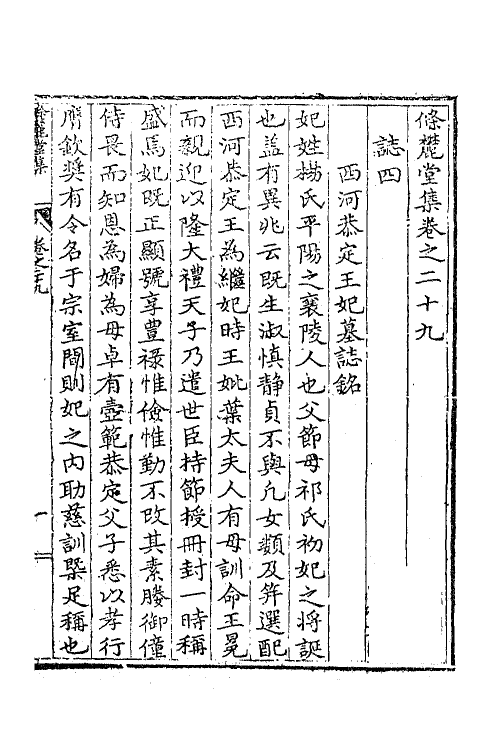 條麓堂集卷之二十九
誌四
西河恭定王妃墓誌銘
妃姓楊氏平陽之襄陵人也父節母祁氏初妃之將誕
也蓋有異兆云既生淑慎靜貞不與凡女類及笄選配
西河恭定王為繼妃時王妣葉太夫人有母訓命王冕
而親迎以隆大禮天子乃遣世臣持節授冊封一時稱
盛焉妃既正顯號享豊祿惟儉惟勤不改其素媵御僮
侍畏而知恩為婦為母卓有壼範恭定父子悉以孝行
膺欽奬有令名于宗室間則妃之內助慈訓槩足稱也
條麓堂集
卷之二九
一